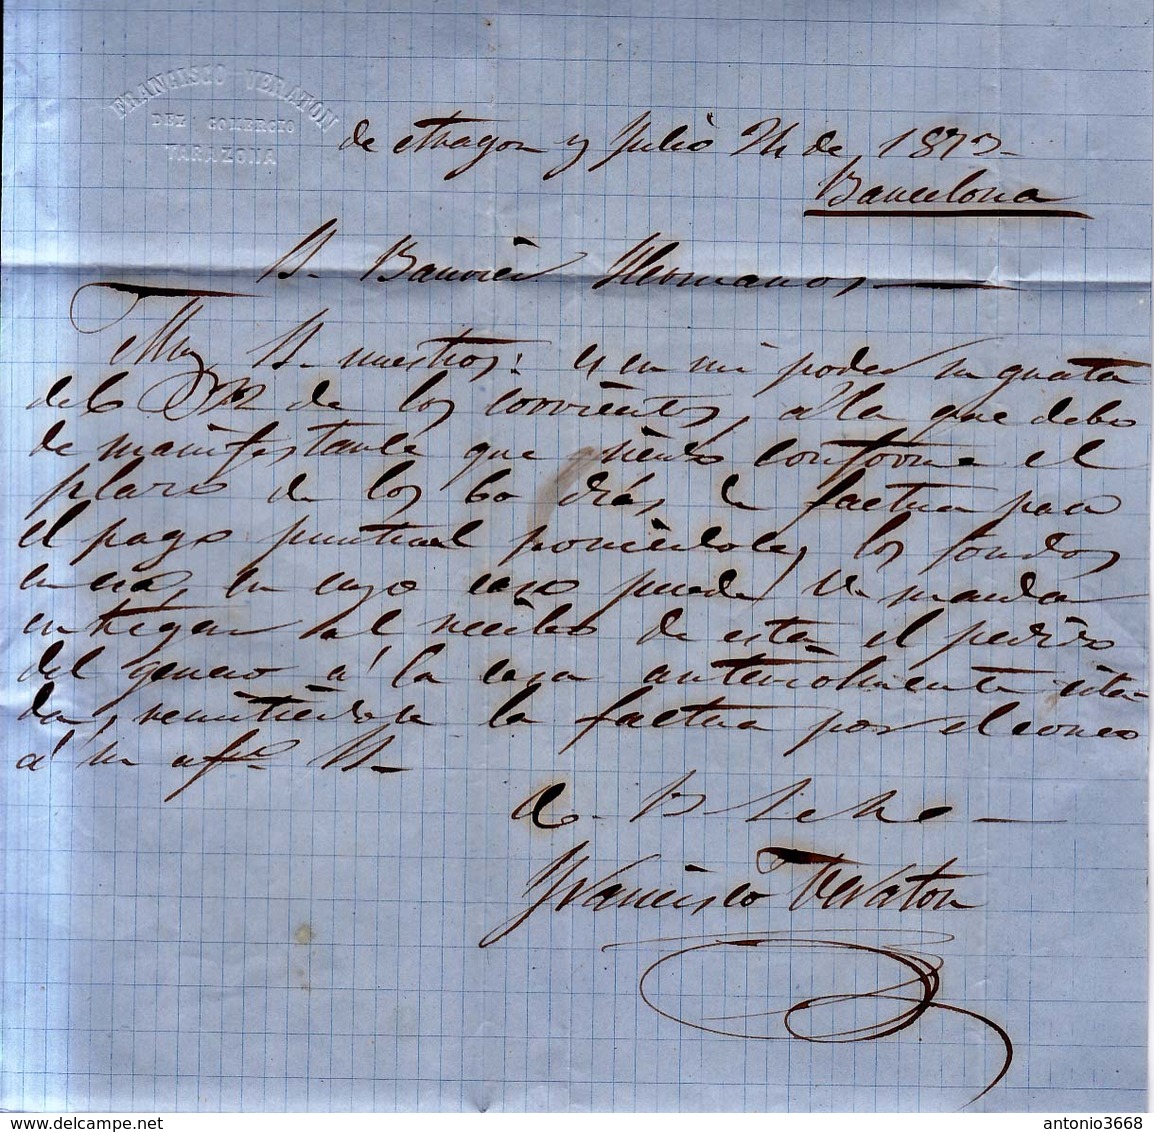 FRANCISCO VERATON
DEL COMERCIO
TARAZONA
de Aragon y Julio 24 de 1873
Barcelona
S. Hermanos
Muy S. nuestros: es en mi poder su grata
del 6 de los corrientes, á la que debo
de manifestarle que siendo conforme el
plazo de los 60 dias de factura para
el pago puntual poniendoles los fondos
en esa, en cuyo caso puede V. mandar
entregar al recibo de esta el pedido
del genero á la casa anteriormente cita-
da, remitiendose la factura por el correo
á su afmo S.
Q. B. S. M.
Francisco Veraton
www.delcampe.net
antonio3668